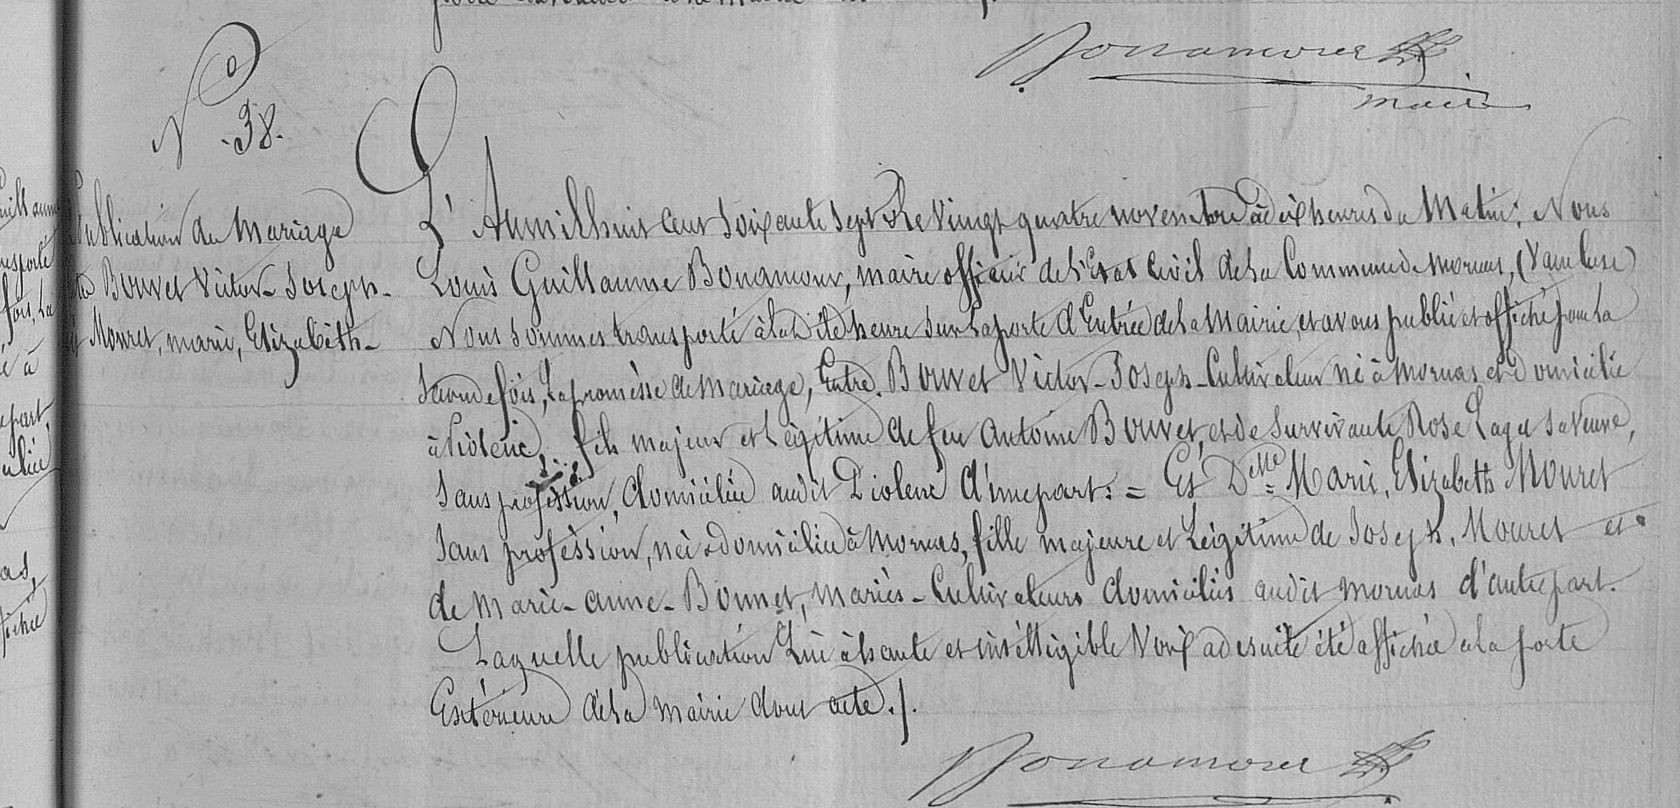 Bonamour
maire
N°
38.
Publication de Mariage
Bouvet Victor-Joseph-
et Mouret, marie, Elizabeth-
L'An mil huit cent soixante sept & le vingt quatre novembre à dix heures du Matin; Nous
Louis Guillaume Bonamour, maire officier de l'Etat Civil de la Commune de Mornas, (Vaucluse)
Nous sommes transporté à la dite heure sur la porte d'Entrée de la Mairie, et avons publié et affiché pour la
seconde fois, La promesse de Mariage, Entre Bouvet Victor-Joseph-Cultivateur né à Mornas et domicilié
à Piolenc, fils majeur et Légitime de feu Antoine Bouvet, et de Survivante Rose Laget sa Veuve,
Sans profession, domiciliée audit Piolenc d'une part: = Et Dlle = Marie, Elizabeth Mouret
Sans profession, née & domiciliée à Mornas, fille majeure et Légitime de Joseph, Mouret et
de Marie-anne-Bonnet, mariés-Cultivateurs domiciliés audit mornas d'autre part.
Laquelle publication Lue à haute et intélligible Voix a de suite été affichée a la porte
Extérieure de la Mairie dont acte./.
Bonamour